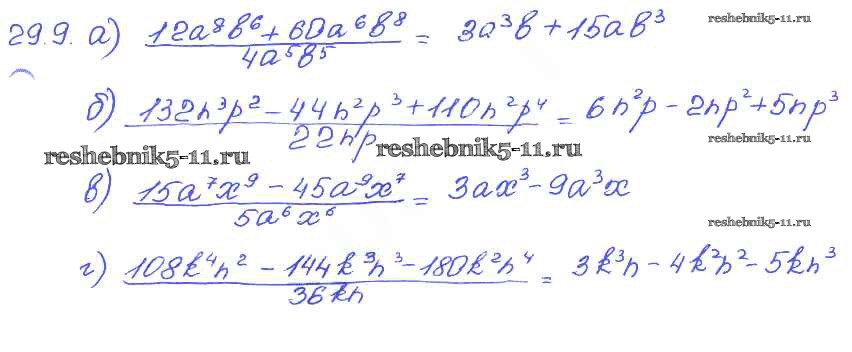 29.9. а) (12a⁸b⁶ + 60a⁶b⁸)/(4a⁵b⁵) = 3a³b + 15ab³ reshebnik5-11.ru
б) (132n³p² - 44n²p³ + 110n²p⁴)/(22np) = 6n²p - 2np² + 5np³
reshebnik5-11.ru reshebnik5-11.ru reshebnik5-11.ru
в) (15a⁷x⁹ - 45a⁹x⁷)/(5a⁶x⁶) = 3ax³ - 9a³x
reshebnik5-11.ru
г) (108k⁴n² - 144k³n³ - 180k²n⁴)/(36kn) = 3k³n - 4k²n² - 5kn³